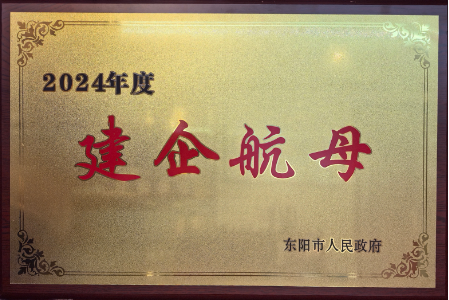 2024年度
建企航母
东阳市人民政府